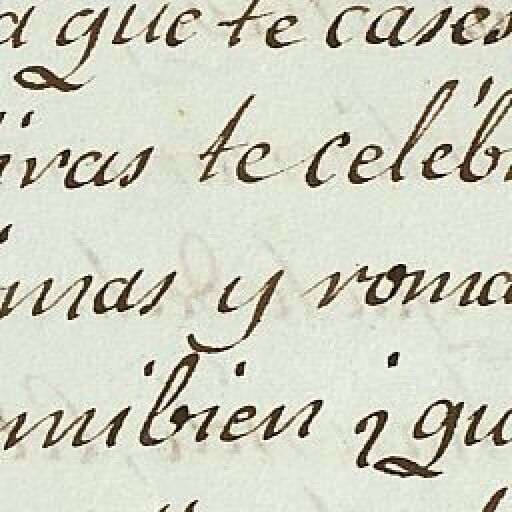 a que te cases
iras te celébr
imas y roma
omi bien ¿qu